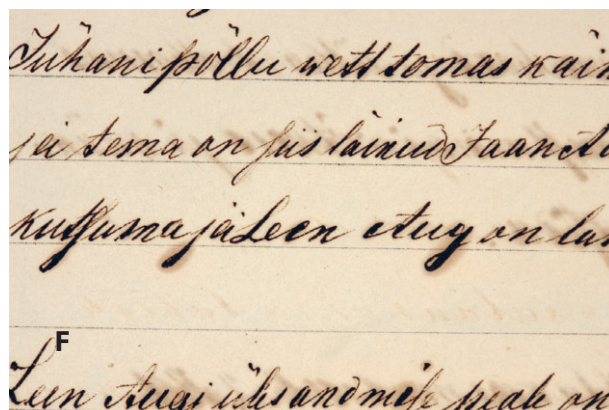 Jühani põllu wett tomas käin
ja tema on siis läinud Jaan Au
kutsuma ja Leen Aug on la
F
Leen Augi üles andmise peale on